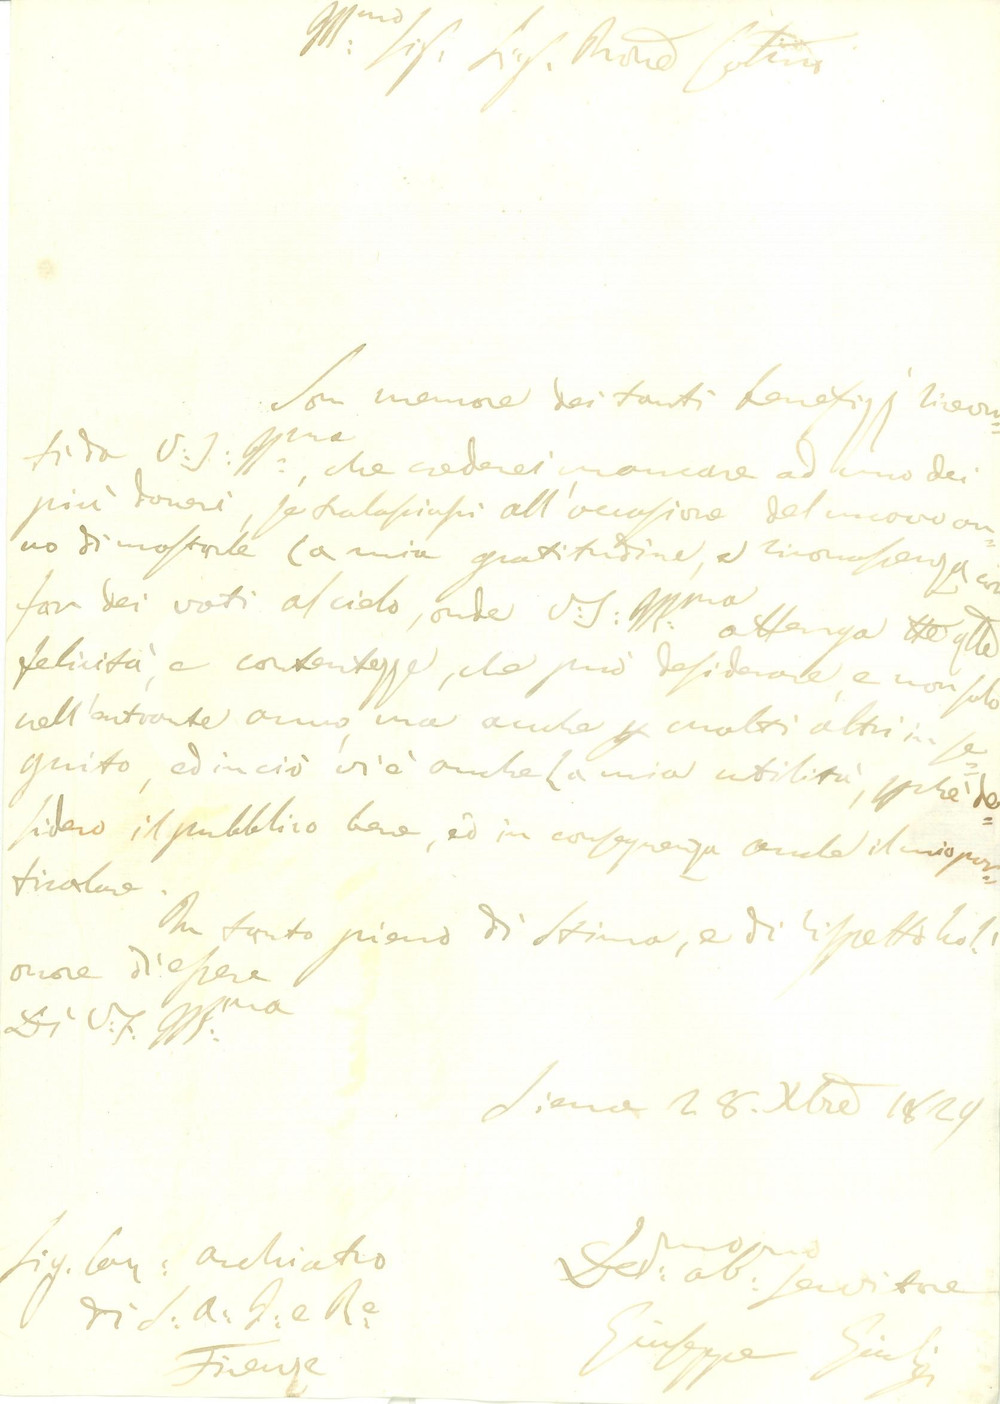 Ill:mo Sig. Sig. Prone Colmo
Son memore dei tanti benefizj ricevu=
ti da V: S: Ill:ma, che crederei mancare ad uno dei
più doveri, se tralasciassi all'occasione del nuovo an=
no dimostrarle la mia gratitudine, e riconoscenza con
far dei voti al cielo, onde V: S: Ill:ma ottenga tte qlle
felicità, e contentezze, che può desiderare, e non solo
nell'entrante anno, ma anche p molti altri in se=
guito, ed in ciò vi è anche la mia utilità, pchè de=
sidero il pubblico bene, ed in conseguenza anche il mio par=
ticolare.
In tanto pieno di stima, e di rispetto ho l'
onore di essere
Di V: S. Ill:ma
Siena 28. Xbre 1829
Sig. Cav: archiatro
di S: A: I: e R:e
Firenze
Dev:mo ob:mo servitore
Giuseppe Giulj